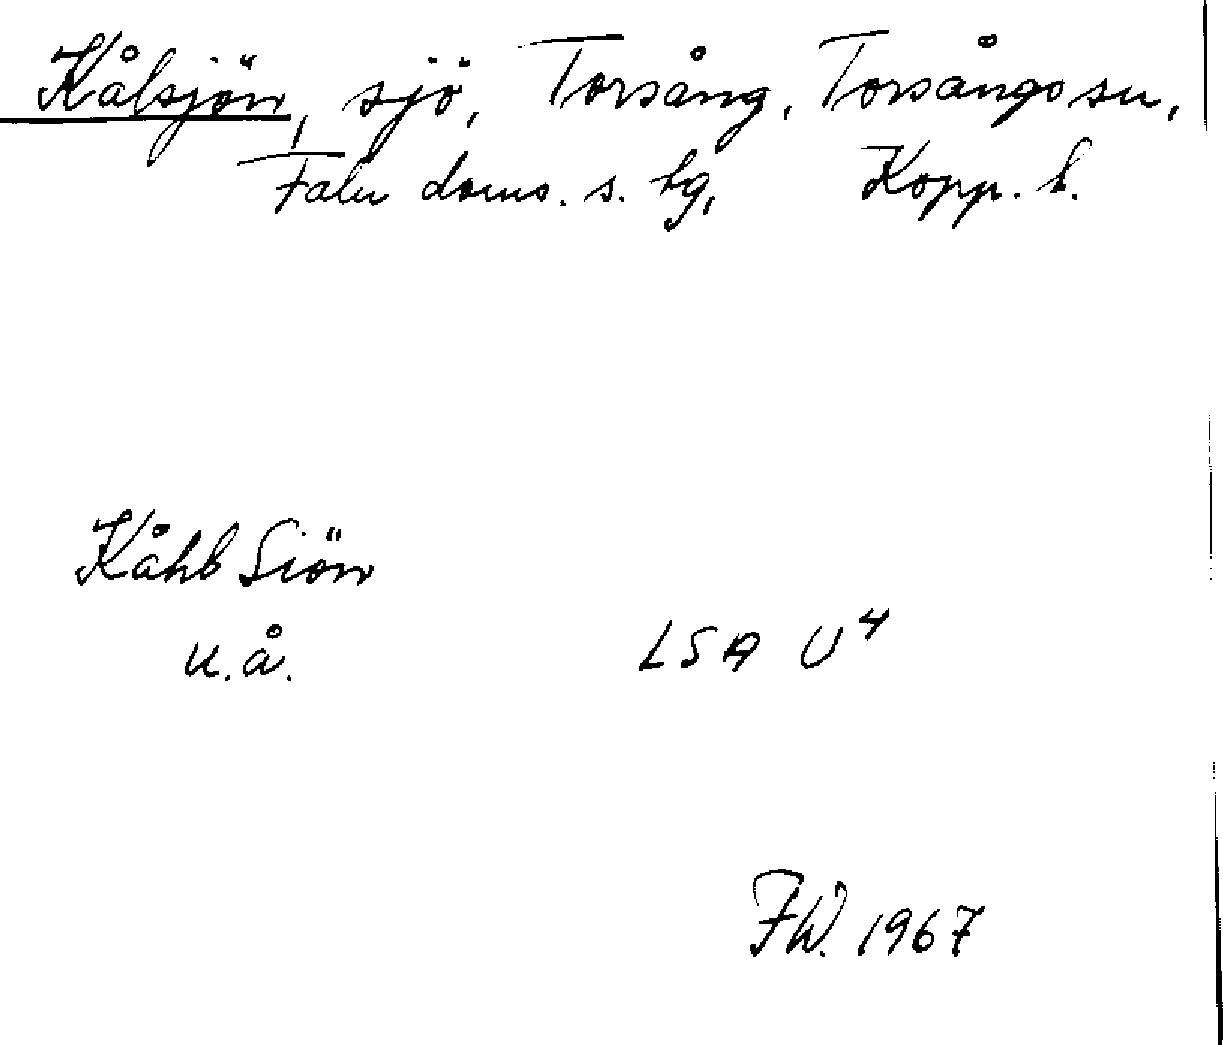 Kålsjön, sjö, Torsång, Torsångs sn,
Falu doms. s. tg, Kopp. l.
Kåhl Siön
u.å. LSA U4
FW. 1967